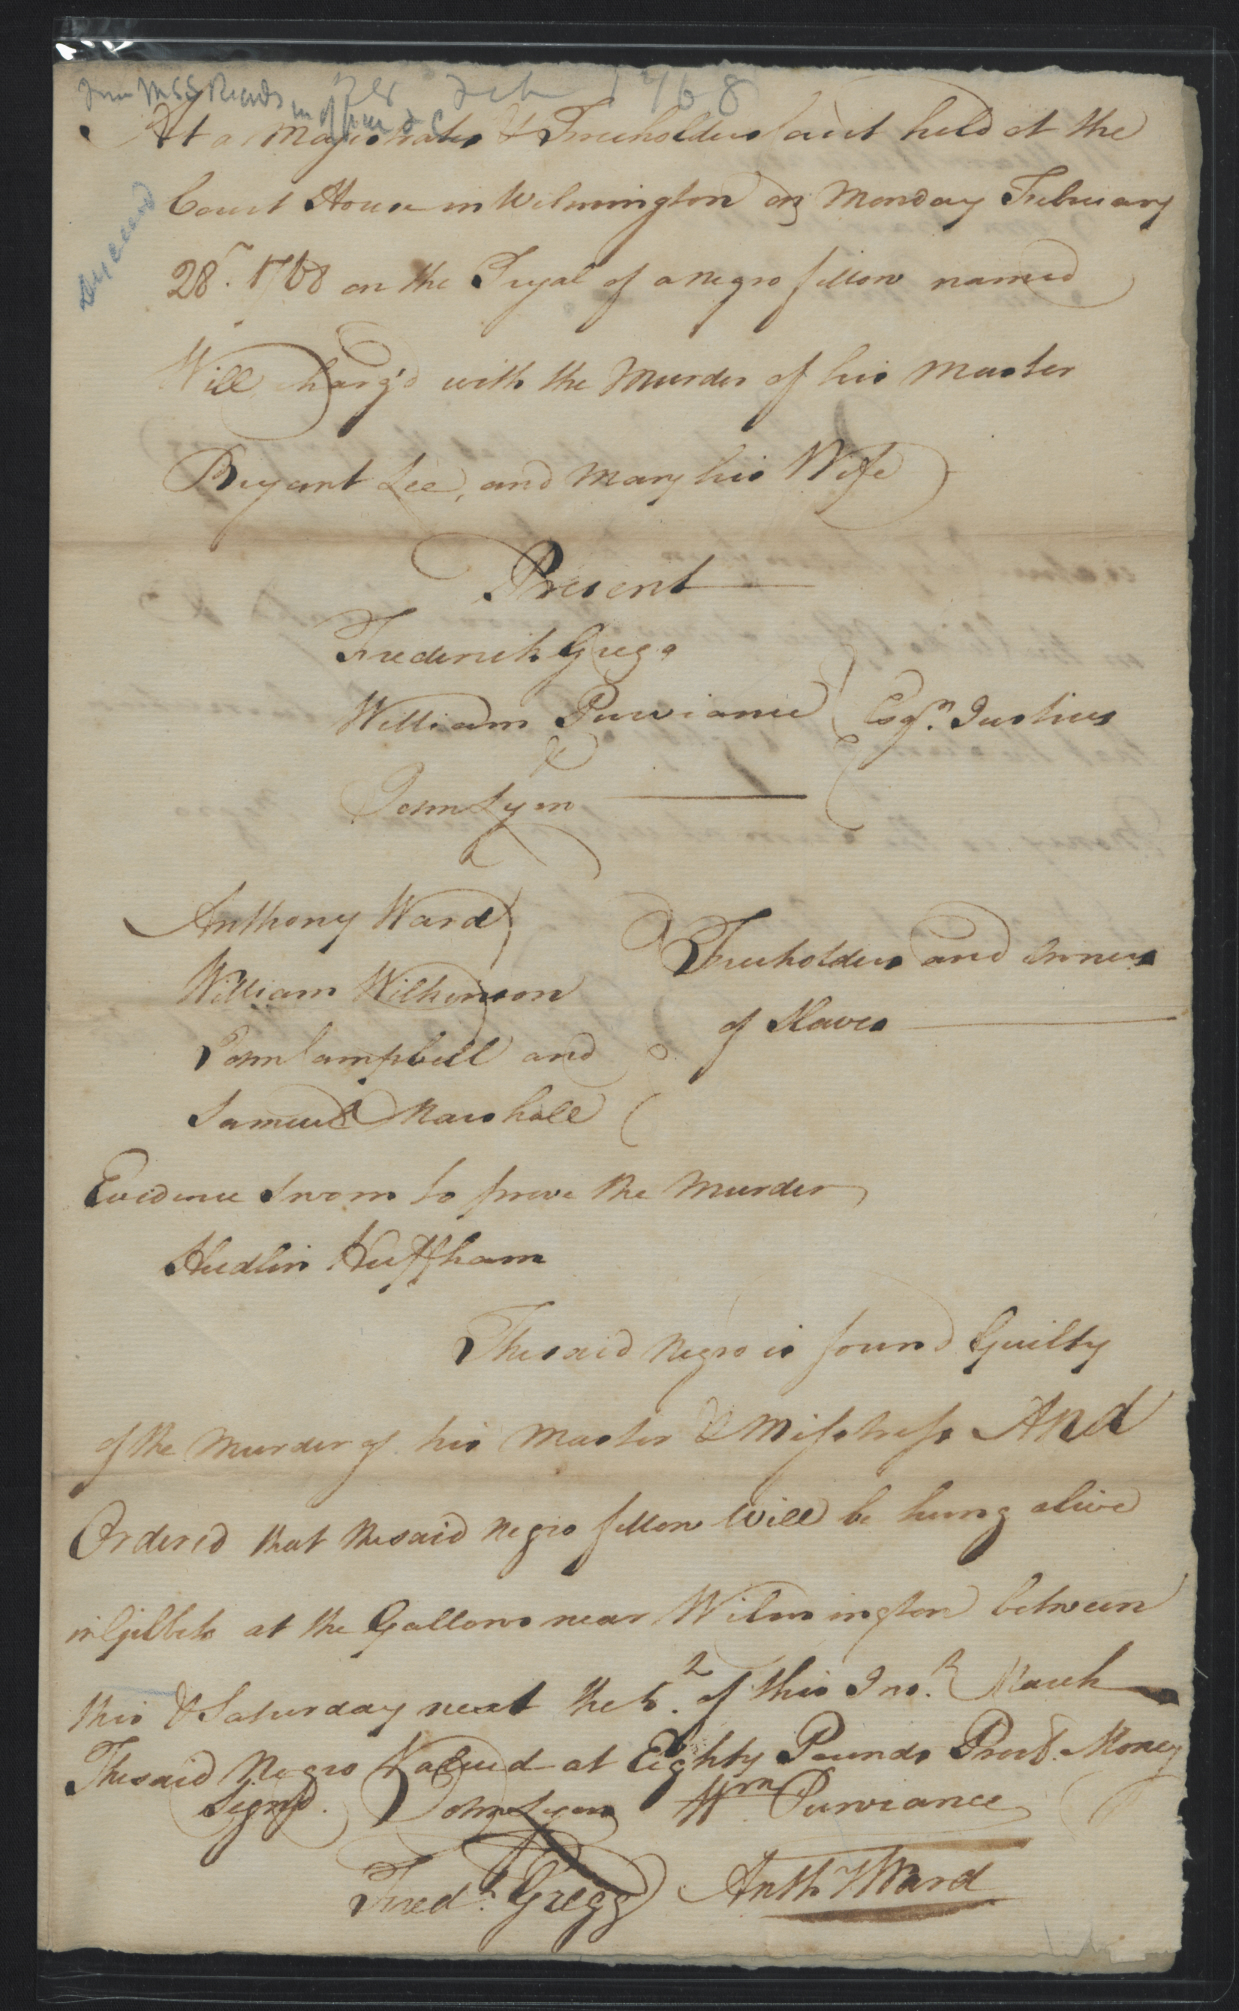 28 Feb 1768
from MSS Records
in office S C
At a Magistrates & Freeholders Court held at the
Court House in Wilmington on Monday February
28th. 1768 on the Tryal of a negro fellow named
Will charg'd with the Murder of his Master
Bryant Lee, and Mary his Wife
Present
Frederick Gregg
William Purviance
Esqrs. Justices
&
John Lyon
Anthony Ward
William Wilkinson
John Campbell and
Samuel Marshall
Freeholders and owners
of Slaves
Evidence sworn to prove the Murder
Hudlin Huffham
The said Negro is found Guilty
of the Murder of his Master & Misstress And
Ordered that the said negro fellow Will be hung alive
in Gibbets at the Gallows near Wilmington between
this & Saturday next the 5th. of this Inst. March
The said Negro Valued at Eighty Pounds Procl. Money
Signd. John Lyon Wm Purviance
Fredk. Gregg Anth Ward